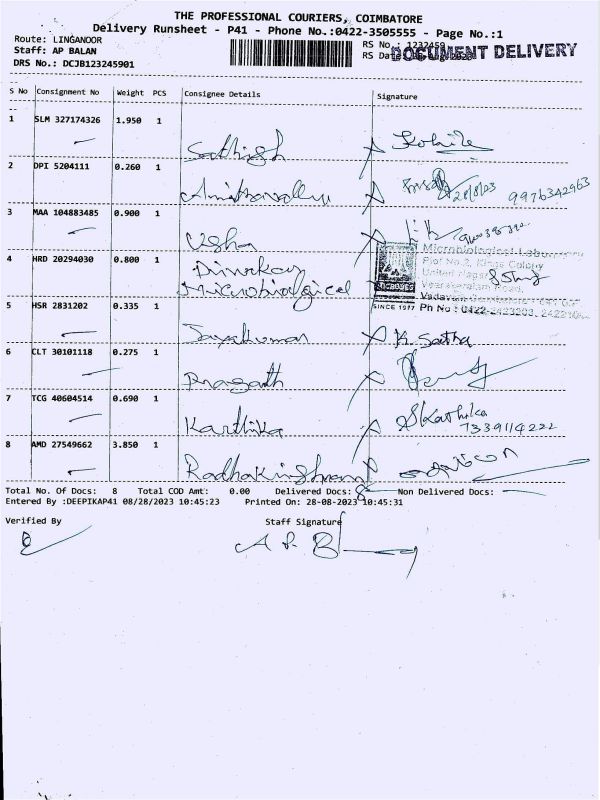 THE PROFESSIONAL COURIERS, COIMBATORE
Delivery Runsheet - P41 - Phone No.:0422-3505555 - Page No.:1
Route: LINGANOOR
RS No.: 1232459
Staff: AP BALAN
RS Date
DOCUMENT DELIVERY
DRS No.: DCJB123245901
S No Consignment No Weight PCS Consignee Details Signature
1 SLM 327174326 1.950 1
Sathish
2 DPI 5204111 0.260 1
28/8/23 9976342963
3 MAA 104883485 0.900 1
Usha
4 HRD 20294030 0.800 1
Microbiological
Microbiological Laboratory
Plot No.2, Kings Colony
United Nagar
Veerakeralam Road,
SINCE 1977 Ph No : 0422-2423203,
5 HSR 2831202 0.335 1
Jayakumar K. Satha
6 CLT 30101118 0.275 1
Prasath
7 TCG 40604514 0.690 1
Karthika
7339114222
8 AMD 27549662 3.850 1
Total No. Of Docs: 8 Total COD Amt: 0.00 Delivered Docs: 8 Non Delivered Docs:
Entered By :DEEPIKAP41 08/28/2023 10:45:23 Printed On: 28-08-2023 10:45:31
Verified By Staff Signature